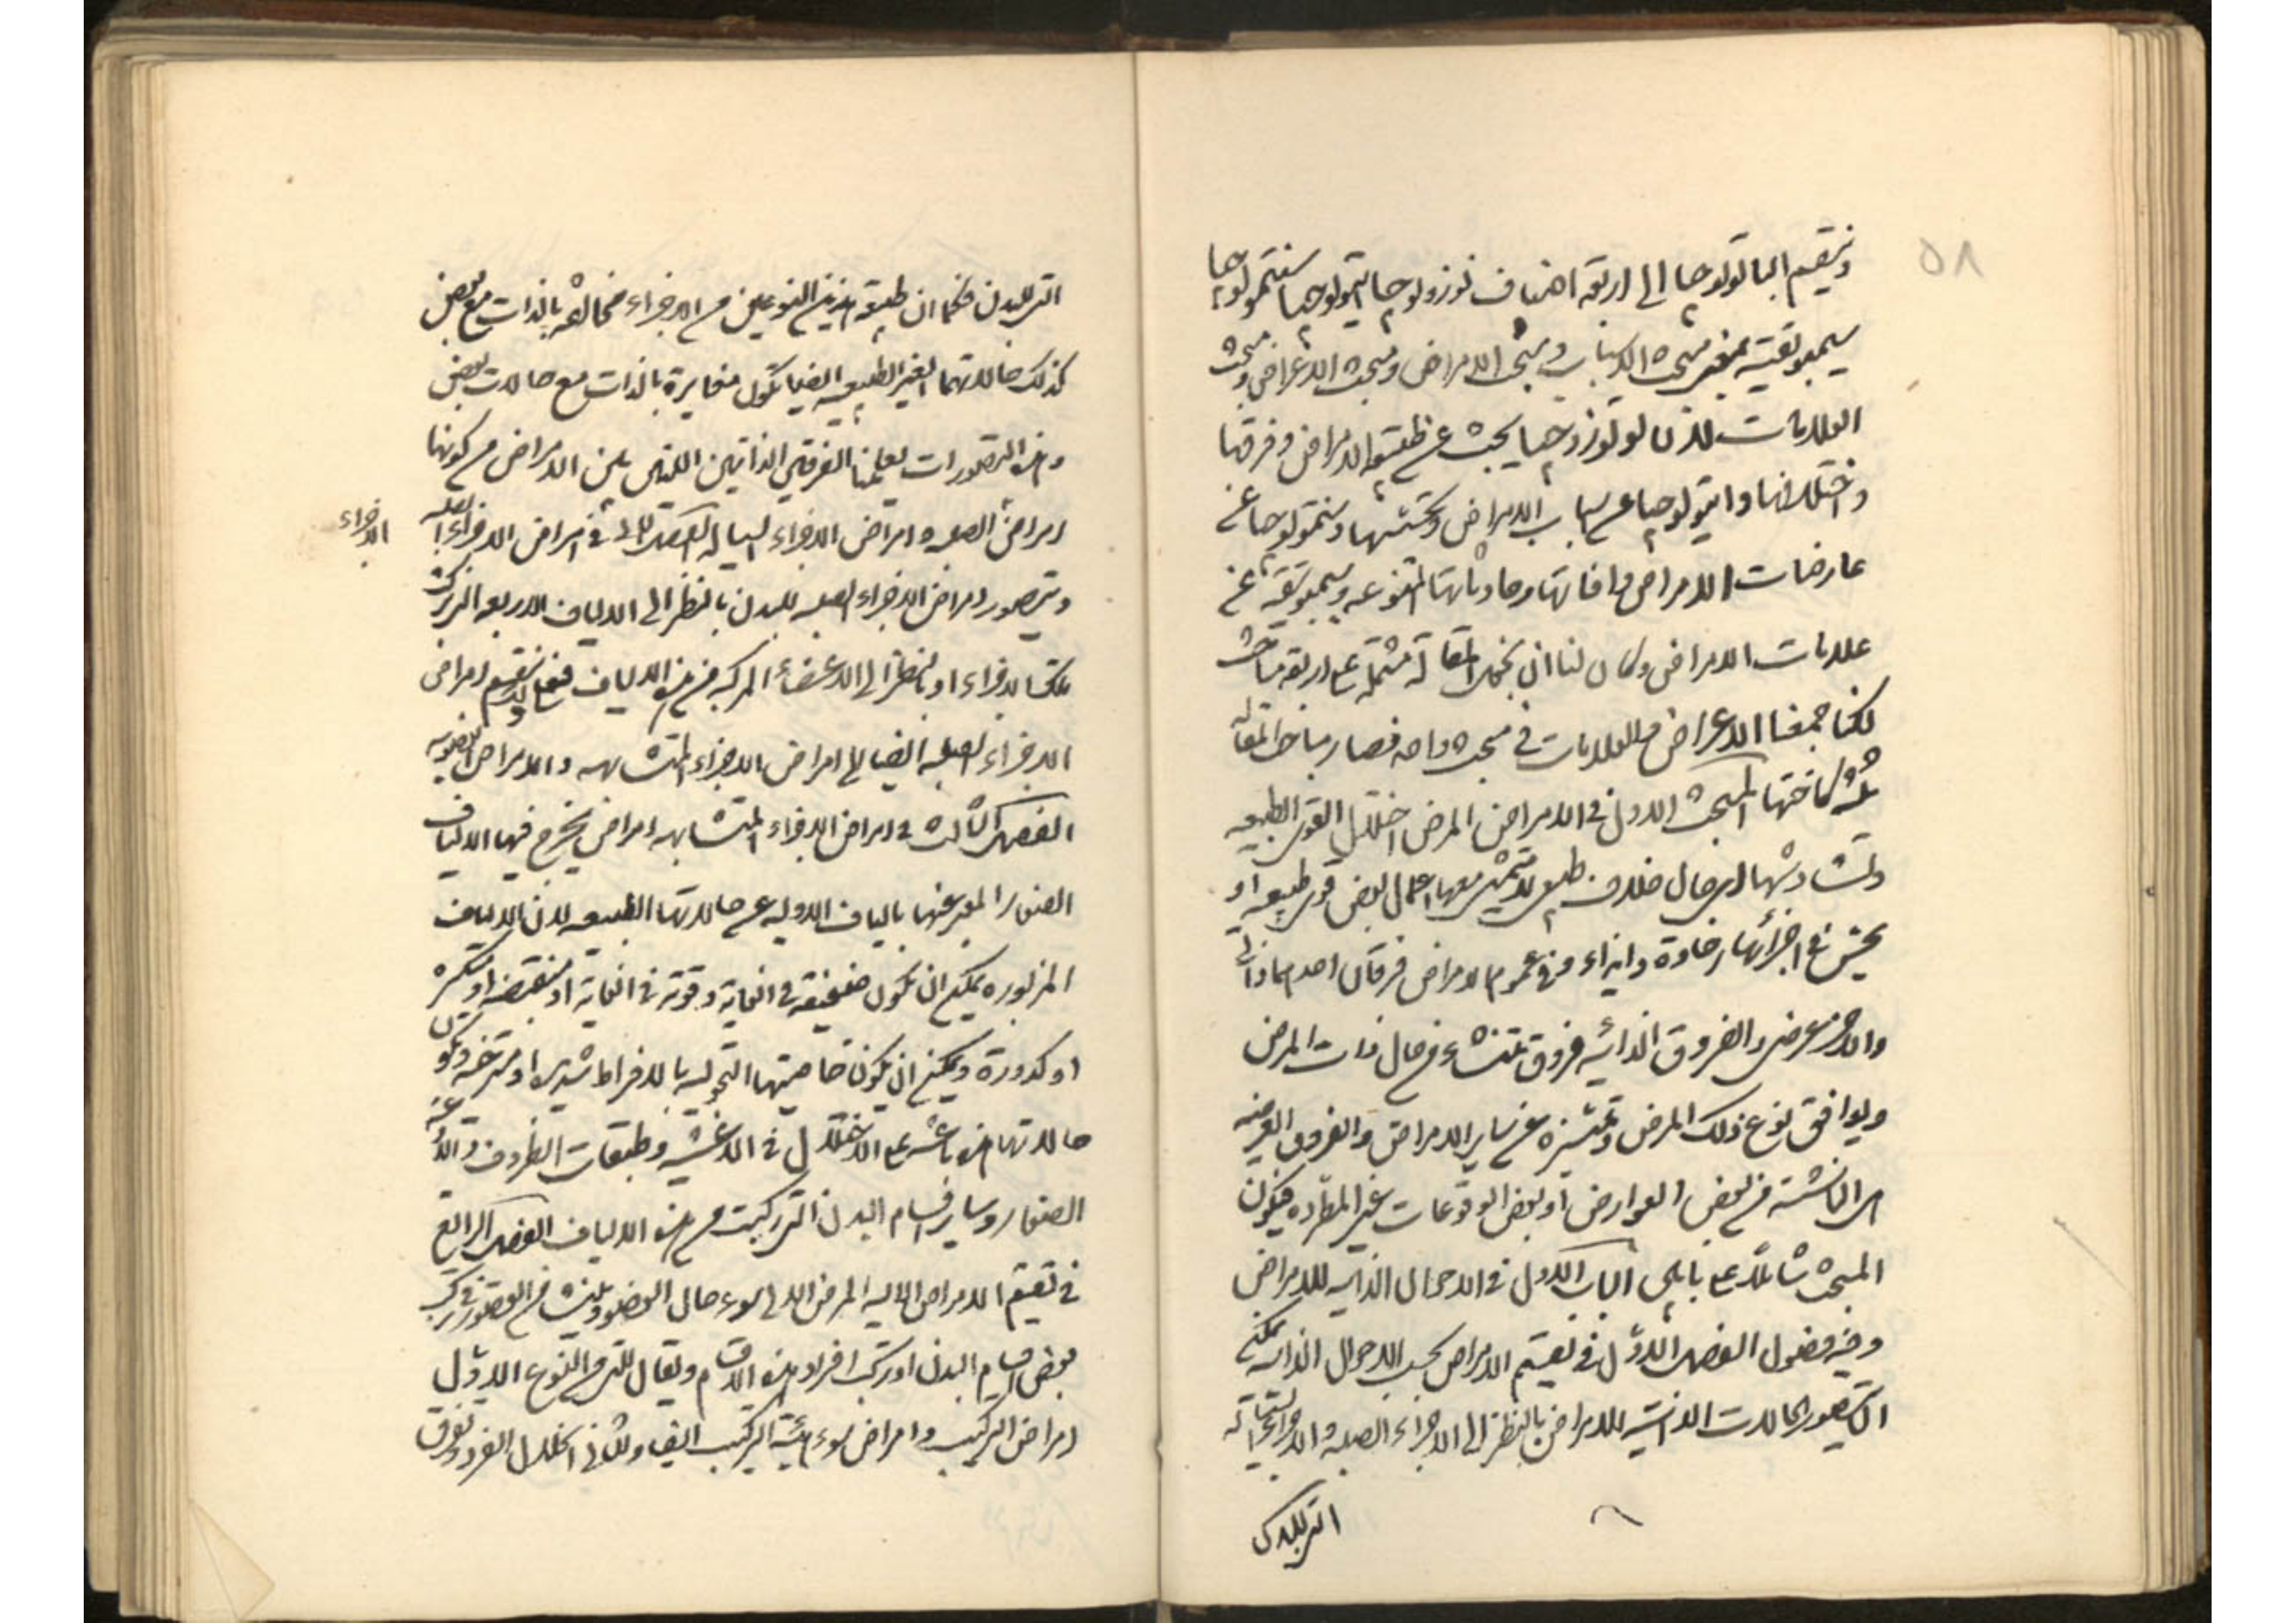 ٥٨
وتنقسم الباتولوجيا الى اربعة اصناف نوزولوجيا ايتيولوجيا سنتمولوجيا
سيميوتيقيه بمعنى مبحث الاسباب ومبحث الامراض ومبحث الاعراض ومبحث
العلامات لان نوزولوجيا يبحث عن طبيعة الامراض وفرقها
واختلافها وايتيولوجيا عن اسباب الامراض وسنتمولوجيا عن
عارضات الامراض وافاتها وحادثاتها المتنوعه وسيميوتيقيه عن
علامات الامراض وكان لنا ان نجعل المقالة مشتملة على اربعة مباحث
لكنا جمعنا الاعراض والعلامات في مبحث واحد فصار مباحث المقاله
ثلثة كاختها المبحث الاول في الامراض المرض اختلال القوى الطبيعيه
وتشاوشها اى حال خلاف طبيعى لا يتمشى معها اعمال بعض قوى طبيعيه او
يحس في اجزائها رخاوة وايذاء وفي عموم الامراض فرقان احدهما ذاتى
والاخر عرضى والفروق الذاتيه فروق تنشاء من حال ذات المرض
ويوافق نوع ذلك المرض وتميزه عن ساير الامراض والفروق العرضيه
هى الناشئة من بعض العوارض او بعض الوقوعات غير المطرده فيكون
المبحث شاملا على بابين الباب الاول في الاحوال الذاتيه للامراض
وفيه فصول الفصل الاول في تقسيم الامراض بحسب الاحوال الذاتيه يمكن
ان يتصور الحالات الذاتية للامراض بالنظر الى الاجزاء الصلبه والاجزاء السيالة
التى للبدن
التى للبدن فكما ان طبيعة هذين النوعين من الاجزاء مخالفة بالذات مع بعض
كذلك حالاتهما الغير الطبيعيه ايضا تكون مغايرة بالذات مع حالات بعض
وهذه التصورات يعلمنا الفرقين الذاتيين اللذين بين الامراض من كونها
امراض الصلبه وامراض الاجزاء السياله الفصل الثانى في امراض الاجزاء الصلبه
الاجزاء
ويتصور امراض الاجزاء الصلبه للبدن بالنظر الى الالياف الاربعه التى تركبت
تلك الاجزاء او بالنظر الى الاعضاء المركبه من هذه الالياف فعلى هذا تقسيم امراض
الاجزاء الصلبه ايضا الى امراض الاجزاء المتشابهه والامراض العضويه
الفصل الثالث في امراض الاجزاء المتشابهه امراض يخرج فيها الالياف
الصغار المعبر عنها بالياف الاوليه عن حالاتها الطبيعيه لان الالياف
المزبوره يمكن ان تكون ضعيفة في الغاية وقوية في الغاية او منقبضة او منكسره
او كدورة ويمكن ان يكون خاصيتها التحولية بالافراط شديده او مسترخيه وتكون
حالاتها هذه باعثه على الاختلال في الاغشيه وطبقات الظروف والاوعيه
الصغار وساير اقسام البدن التى تركبت من هذه الالياف الفصل الرابع
في تقسيم الامراض الاليه المرض الالى سوء حال العضو وينشاء من القصور في تركيب
بعض اقسام البدن او تركيب افراد هذه الاقسام ويقال للتى من النوع الاول
امراض التركيب وامراض سوء هيئة التركيب ايضا وللثانى انحلال الفرد وتفرق